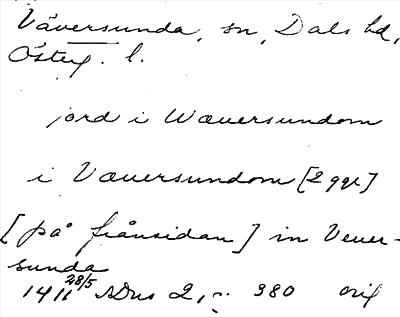 Väversunda, sn, Dals hd,
Österg. l.
jord i Wæuersundom
i Væuersundom [2 ggr]
[på frånsidan] in Veuer-
sunda
1411 28/5 SDns 2, 380 orig